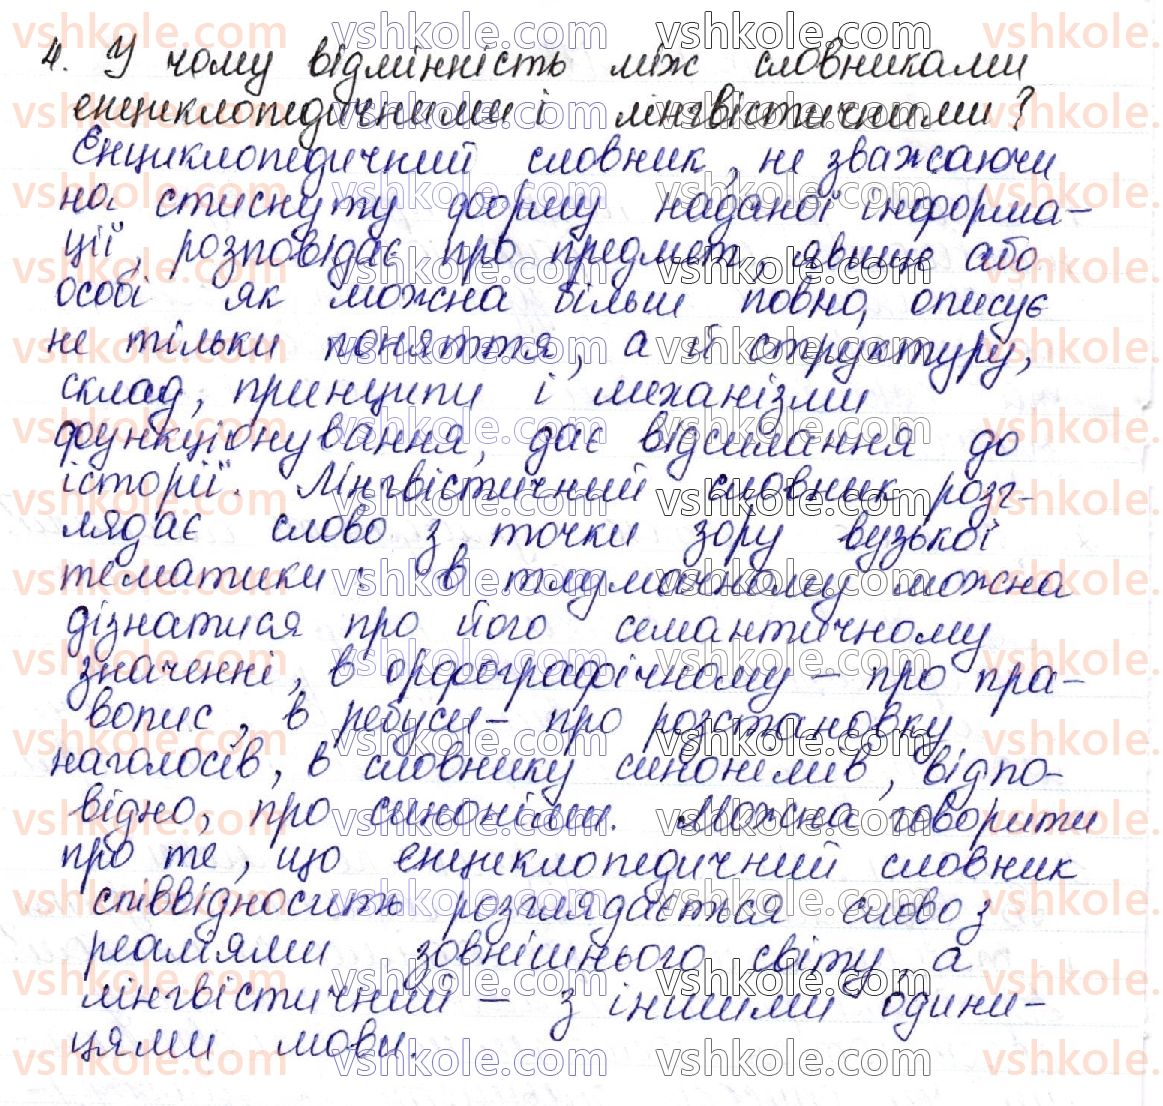 4. У чому відмінність між словниками
енциклопедичними і лінгвістичними?
Енциклопедичний словник, не зважаючи
на стиснуту форму наданої інформа-
ції, розповідає про предмет, явище або
особі як можна більш повно, описує
не тільки поняття, а й структуру,
склад, принципи і механізми
функціонування, дає відсилання до
історії. Лінгвістичний словник розг-
лядає слово з точки зору вузької
тематики: в тлумачному можна
дізнатися про його семантичному
значенні, в орфографічному – про пра-
вопис, в ребуси – про розстановку
наголосів, в словнику синонімів, відпо-
відно, про синоніми. Можна говорити
про те, що енциклопедичний словник
співвідносить розглядається слово з
реаліями зовнішнього світу, а
лінгвістичний – з іншими одини-
цями мови.
vshkole.com